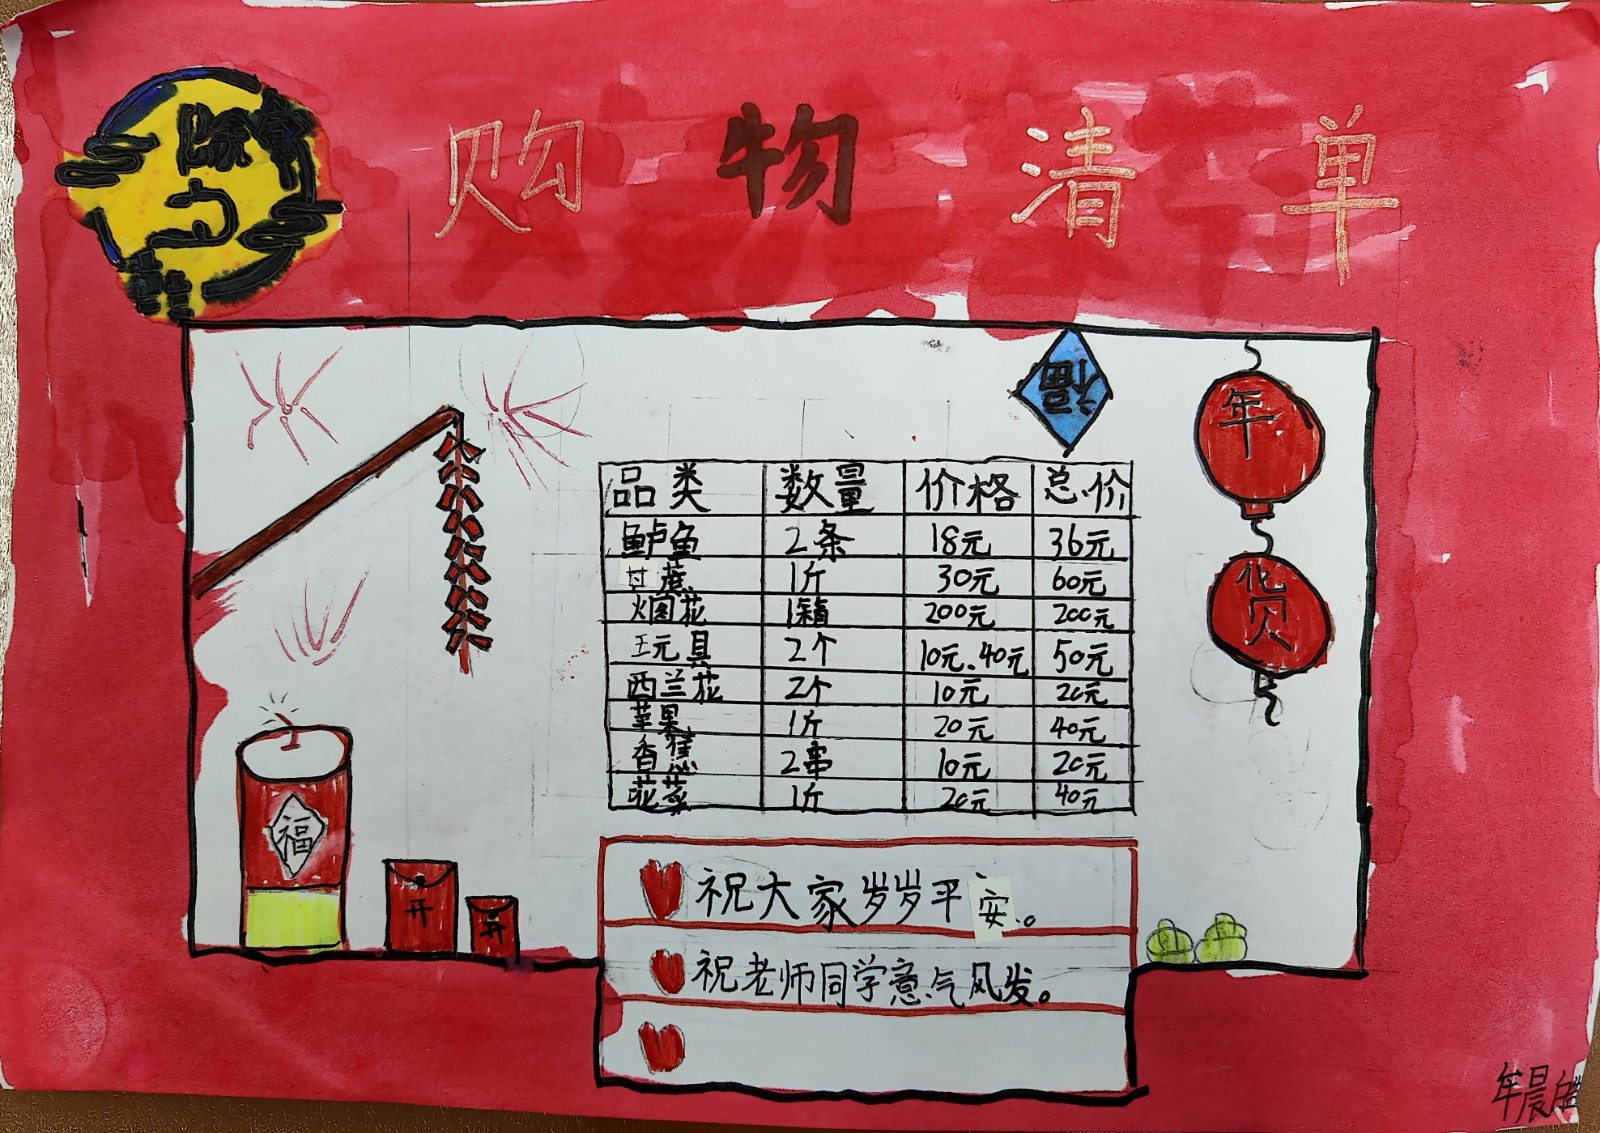 除夕
购物清单
福
年
货
品类 数量 价格 总价
鲈鱼 2条 18元 36元
甘蔗 1斤 30元 60元
烟花 1箱 200元 200元
玩具 2个 10元、40元 50元
西兰花 2个 10元 20元
苹果 1斤 20元 40元
香蕉 2串 10元 20元
1斤 20元 40元
福
开
开
祝大家岁岁平安。
祝老师同学意气风发。
年晨皓